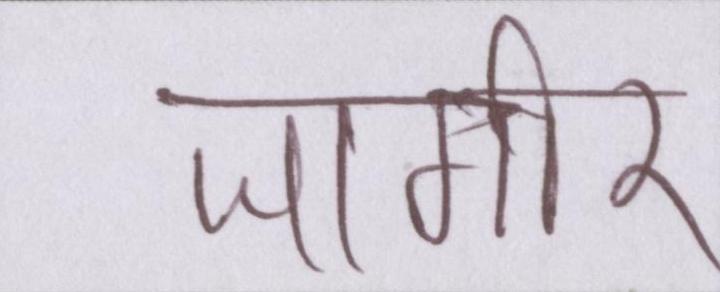 जागीर